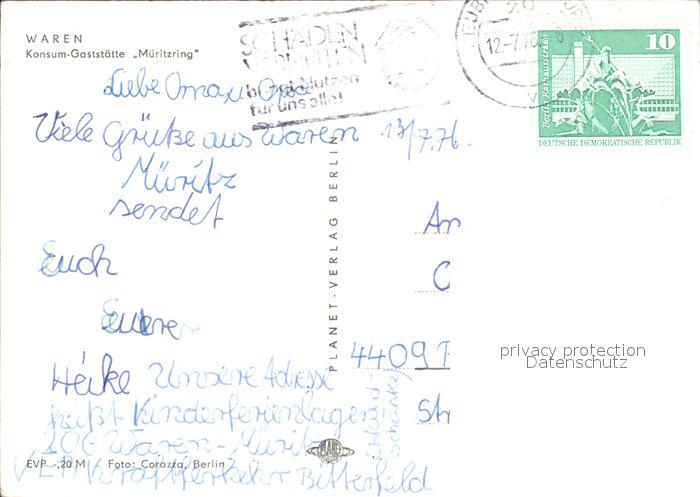 WAREN
Konsum-Gaststätte „Müritzring"
SCHADEN
VERHÜTEN
bringt Nutzen
für uns alle!
12-7.76
10
Berlin, Rathausstraße
DEUTSCHE DEMOKRATISCHE REPUBLIK
Liebe Oma u. Opa
Viele Grüße aus Waren 13/7.76.
Müritz
sendet
Euch
Euere
Heike Unsere Adresse
heißt Kinderferienlager
206 Waren-Müritz
VEB Kraftverkehr Bitterfeld
PLANET-VERLAG BERLIN
An
44091
Str
privacy protection
Datenschutz
EVP -,20 M Foto: Corazza, Berlin